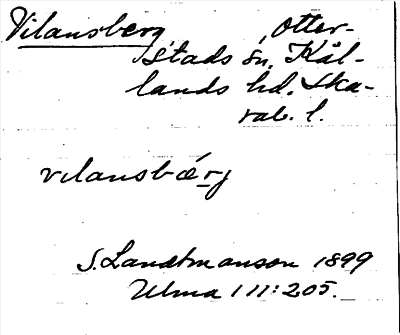 Vilansberg, Otter-
stads sn, Kål-
lands hd. Ska-
rab. l.
vılansbærj
S. Landtmanson 1899
Ulma 111:205.